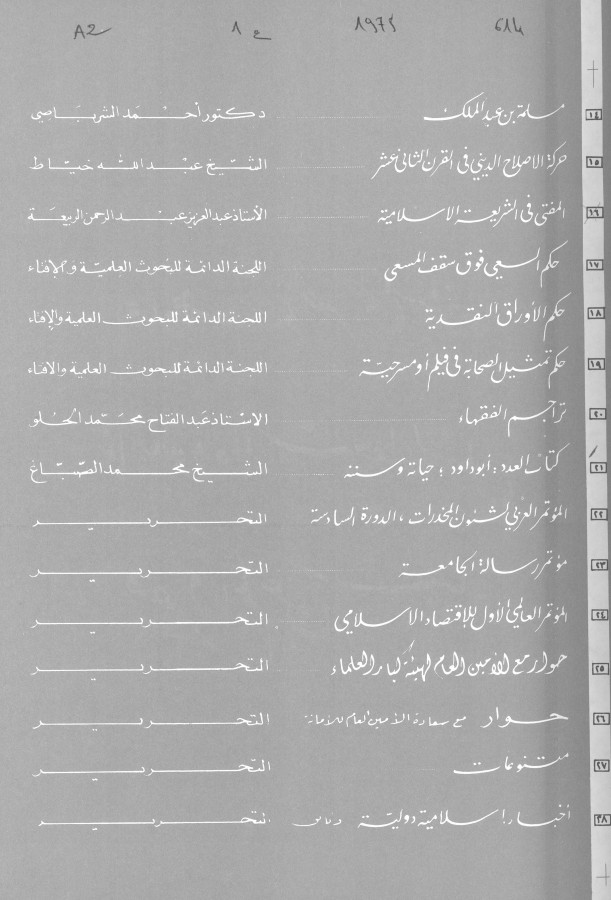 A2 ع 1 1975 614
١٤ مسلمة بن عبد الملك دكتور أحمد الشرباصي
١٥ حركة الاصلاح الديني في القرن الثاني عشر الشيخ عبد الله خياط
١٦ المفتى في الشريعة الاسلامية الأستاذ عبد العزيز عبد الرحمن الربيعة
١٧ حكم السعي فوق سقف المسعى اللجنة الدائمة للبحوث العلمية والافتاء
١٨ حكم الأوراق النقدية اللجنة الدائمة للبحوث العلمية والافتاء
١٩ حكم تمثيل الصحابة في فيلم أو مسرحية اللجنة الدائمة للبحوث العلمية والافتاء
٢٠ تراجم الفقهاء الاستاذ عبد الفتاح محمد الحلو
٢١ كتاب العدد: أبو داود؛ حياته وسننه الشيخ محمد الصباغ
٢٢ المؤتمر العربي لشئون المخدرات، الدورة السادسة التحرير
٢٣ مؤتمر رسالة الجامعة التحرير
٢٤ المؤتمر العالمي الأول للاقتصاد الاسلامي التحرير
٢٥ حوار مع الأمين العام لهيئة كبار العلماء التحرير
٢٦ حوار مع سعادة الأمين العام للأمانة التحرير
٢٧ متنوعات التحرير
٢٨ أخبار إسلامية دولية وثائق التحرير